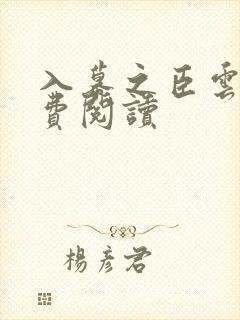 入幕之臣雲
費閱讀
楊彥君